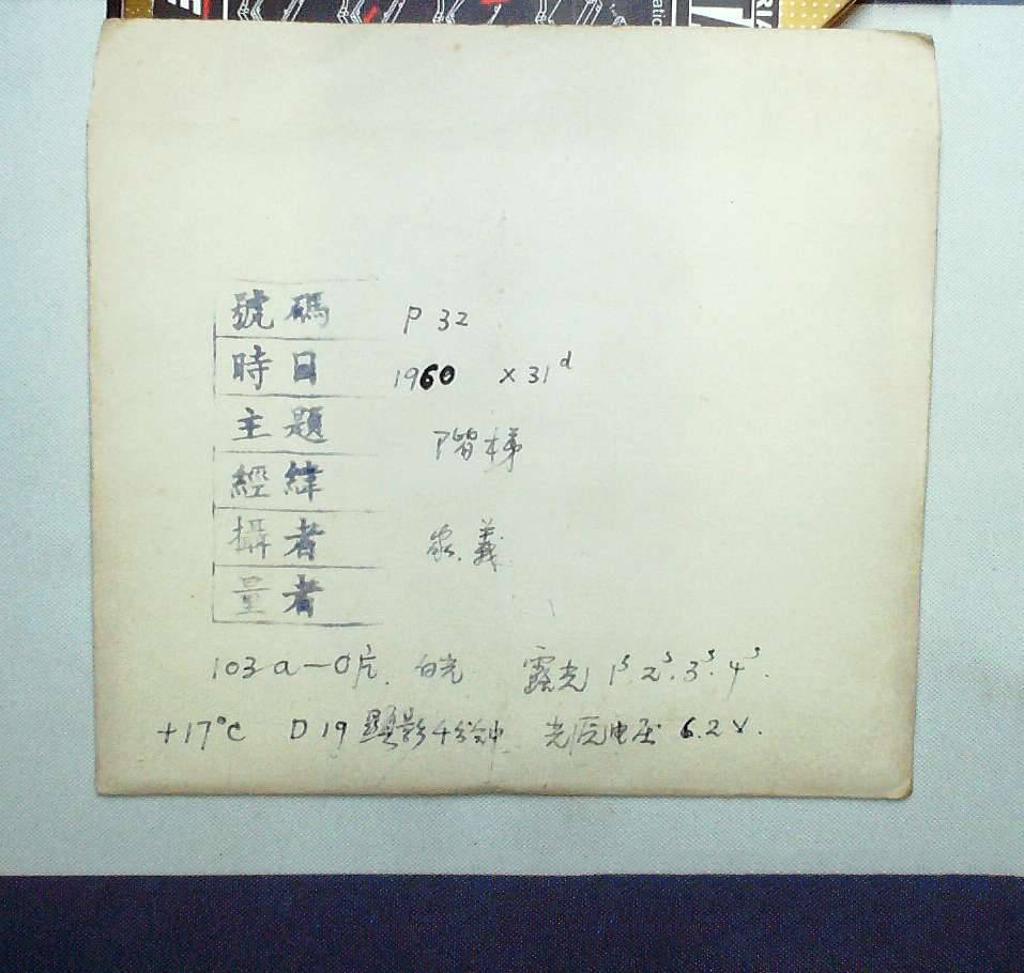 號碼 P 32
時日 1960 X 31d
主題 階梯
經緯
攝者 家義
量者
103a-O片. 白光 露光 1s. 2s. 3s. 4s.
+17°C D19 顯影4分钟 光源电压 6.2V.